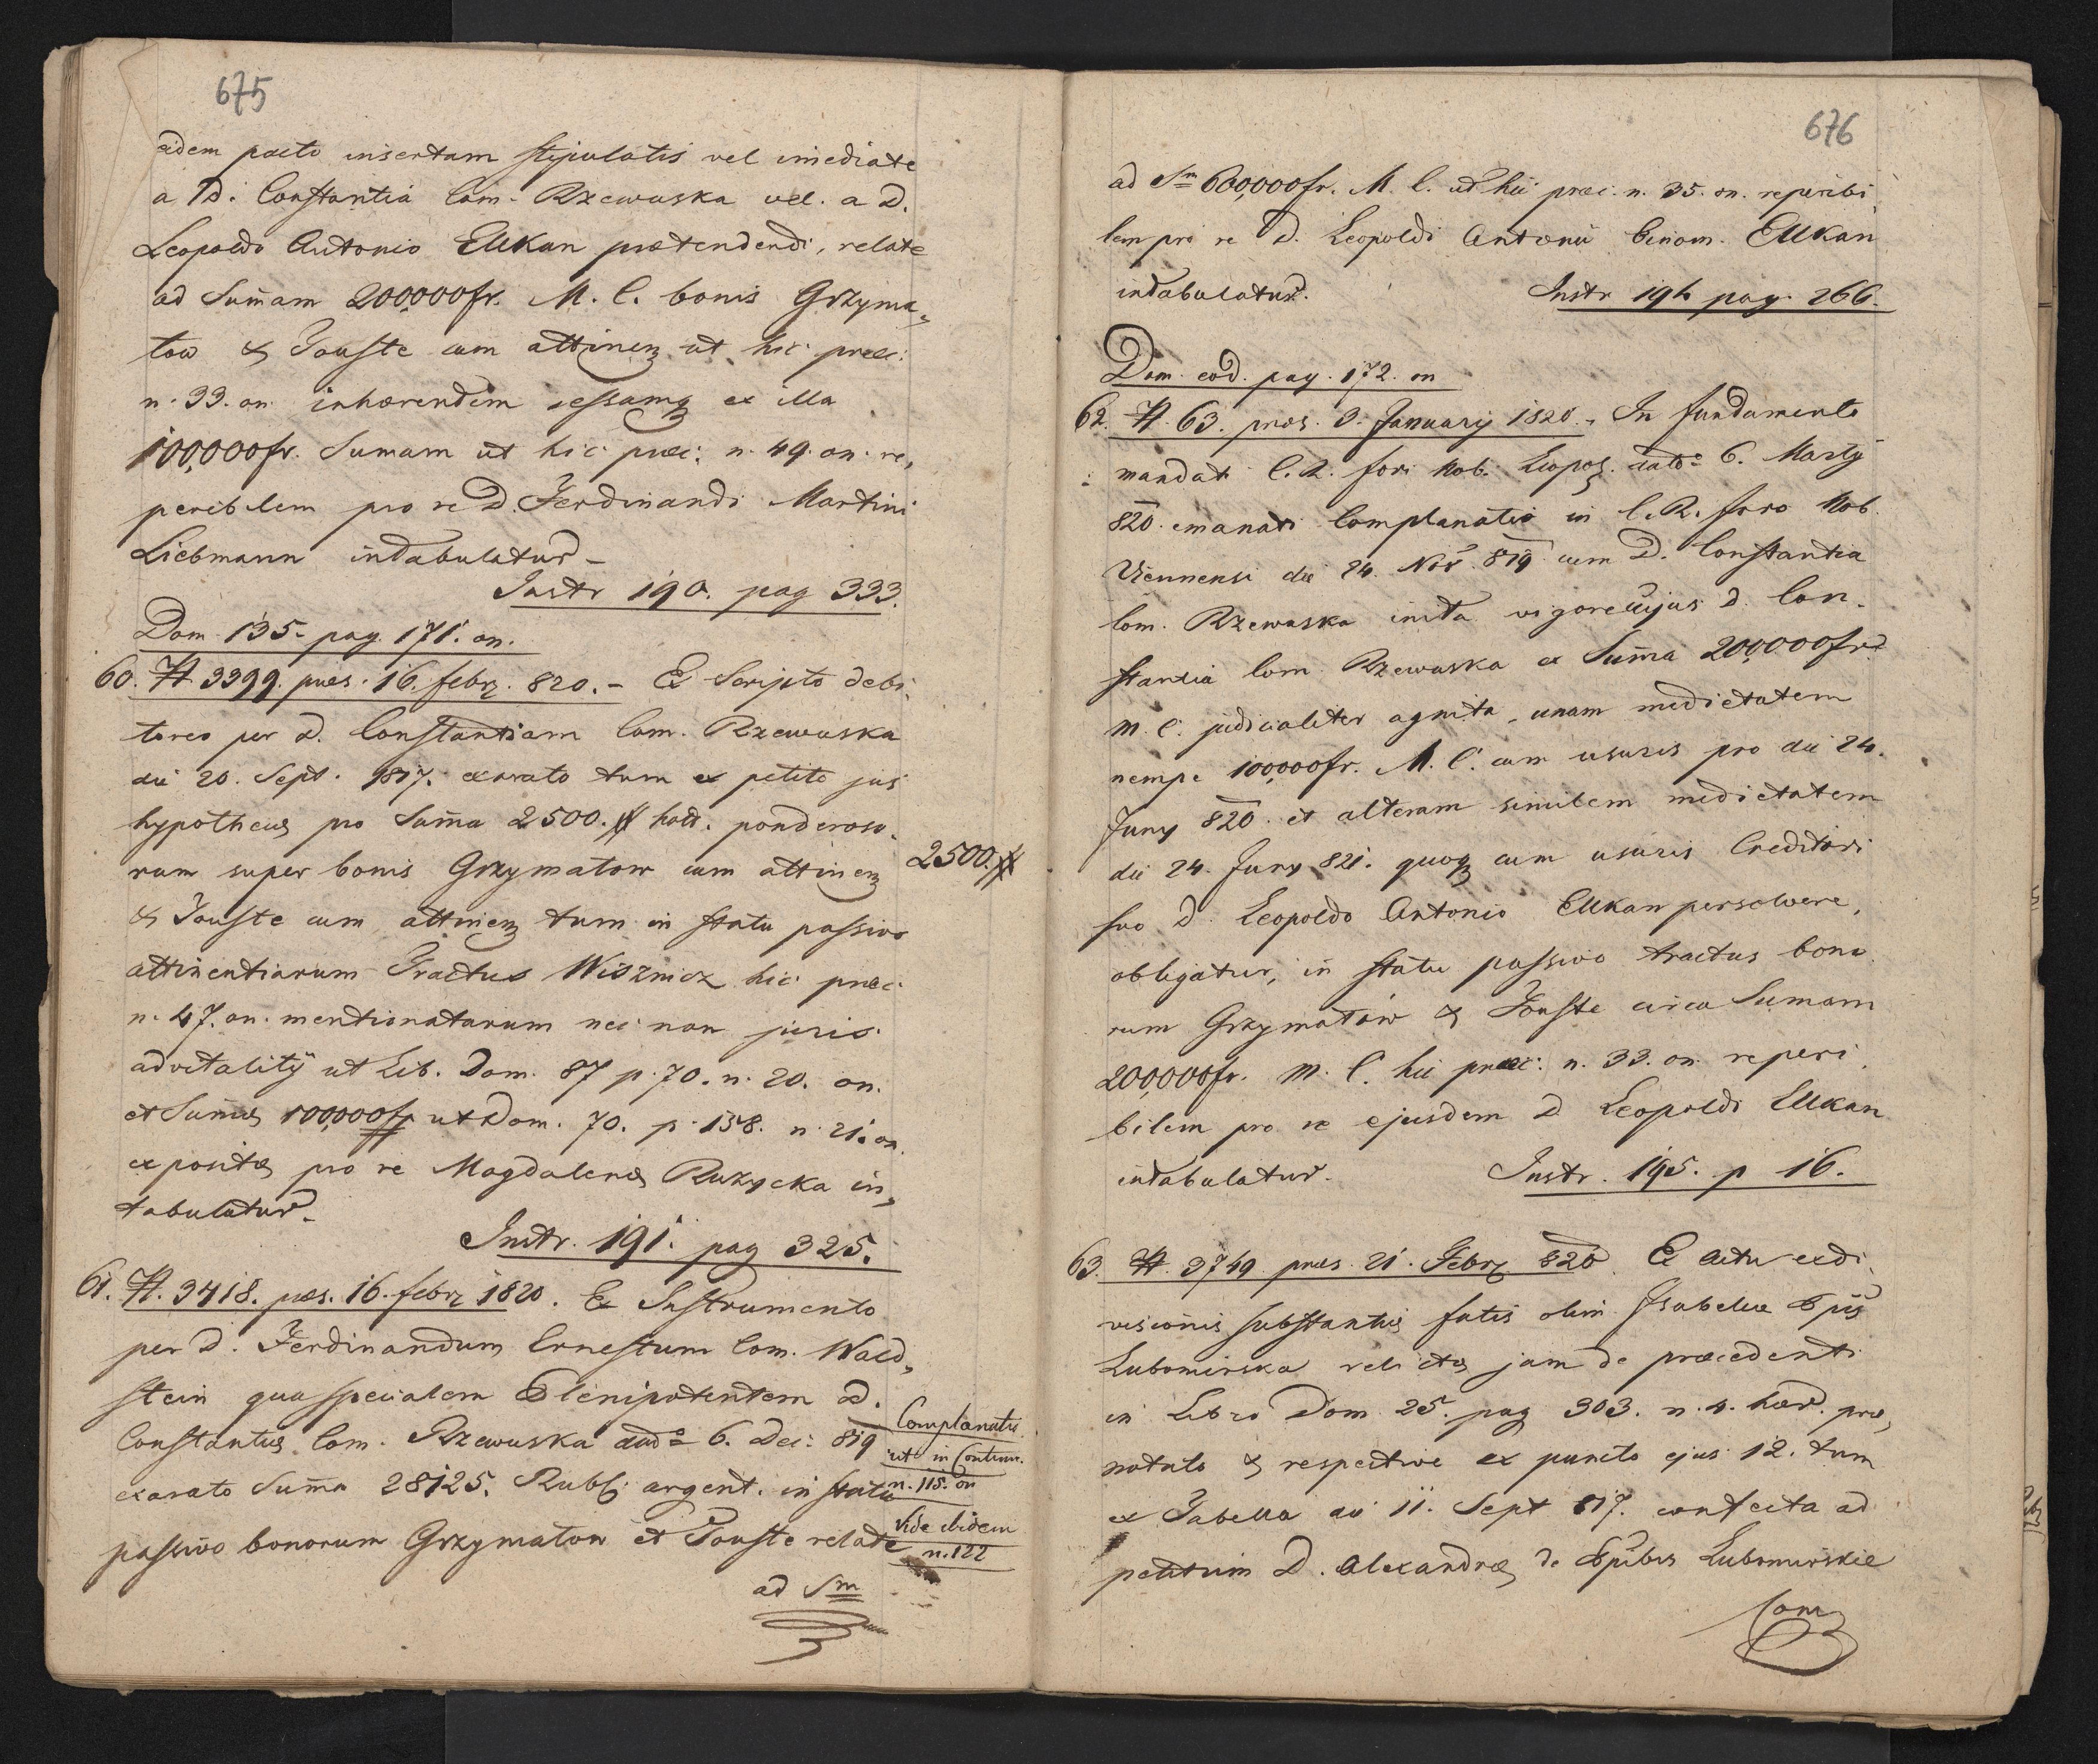 675
eidem pacto insertam stipulatis vel imediate
a D. Constantia Com. Rzewuska vel. a D.
Leopoldo Antonio Ellkan prætendendi, relate
ad Sum̄am 200,000fr. M. C. bonis Grzyma„
tow & Touste cum attinenz ut hic præc:
n. 33. on. inhærendem cessamqz ex illa
100,000fr. Sumam ut hic præc: n. 49. on. re„
peribilem pro re D. Ferdinandi Martini
Liebmann intabulatur –
Instr 190. pag 333.
Dom. 135. pag. 171. on.
60. H. 3399. præs. 16. febr. 820. – Ex Scripto debi„
toreo per D. Constantiam Com. Rzewuska
die 20. Sept. 1817. exarato tum ex petito jus
hypothecæ pro Sum̄a 2500. # holl. ponderoso„
rum super bonis Grzymatow cum attinenz
2500.#
& Touste cum attinenz tum in statu passivo
attinentiarum Tractus Wisznicz hic præc:
n. 47. on. mentionatarum nec non juris
advitalitÿ ut Lib. Dom. 87 p. 70. n. 20. on.
et Sum̄æ 100,000fp ut Dom. 70. p. 138. n. 21. on.
expositæ pro re Magdalenæ Ruzycka in„
tabulatur –
Instr. 191. pag 325.
61. H. 3418. præs. 16. febr 1820. Ex Instrumento
per D. Ferdinandum Ernestum Com. Wald„
stein qua specialem Plenipotentem D.
Constantiæ Com. Rzewuska ddto 6. Dec: 819
exarato Sum̄a 28125. Rubl. argent. in statu
passivo bonorum Grzymatow et Touste relate
Complanatio
ut in Continu.
n. 115. on
Vide ibidem
n. 122
ad Sm
676
ad Sm 600,000fr. M. C. ut hic præc. n. 35. on. reperibi„
lem pro re D. Leopoldi Antonii binom. Ellkan
intabulatur.
Instr 194 pag. 266.
Dom. eod. pag. 172. on
62. H. 63. præs. 3. Januarÿ 1820. – In fundamento
mandati C. R. fori Nob. Leopol. ddto 6. Martÿ
820. emanati Complanatio in C. R. foro Nob.
Viennensi die 24. Nov. 819 cum D. Constantia
Com. Rzewuska inita vigore cujus D. Con„
stantia Com. Rzewuska ex Sum̄a 200,000fr.
M. C. judicialiter agnita, unam medietatem
nempe 100,000fr. M. C. cum usuris pro die 24.
Juny 820. et alteram similem medietatem
die 24. Juny 821. quoqz cum usuris Creditori
suo D. Leopoldo Antonio Ellkan persolvere
obligatur, in statu passivo tractus bono„
rum Grzymatow & Touste circa Sumam
200,000fr. M. C. hic præc: n. 33. on. reperi„
bilem pro re ejusdem D. Leopoldi Ellkan
intabulatur.
Instr. 195. p 16.
63. H. 3749 præs. 21. Febr 820 Ex actu exdi„
visionis substantiæ fatis olim Isabellæ Ppis
Lubomirska relictæ jam de præcedenti
in Libro Dom. 25. pag 303. n. 4. hær. præ„
notato & respective ex puncto ejus 12. tum
ex Tabella die 11. Sept 817. confecta ad
petitum D. Alexandræ de Ppibus Lubomirskie
Com